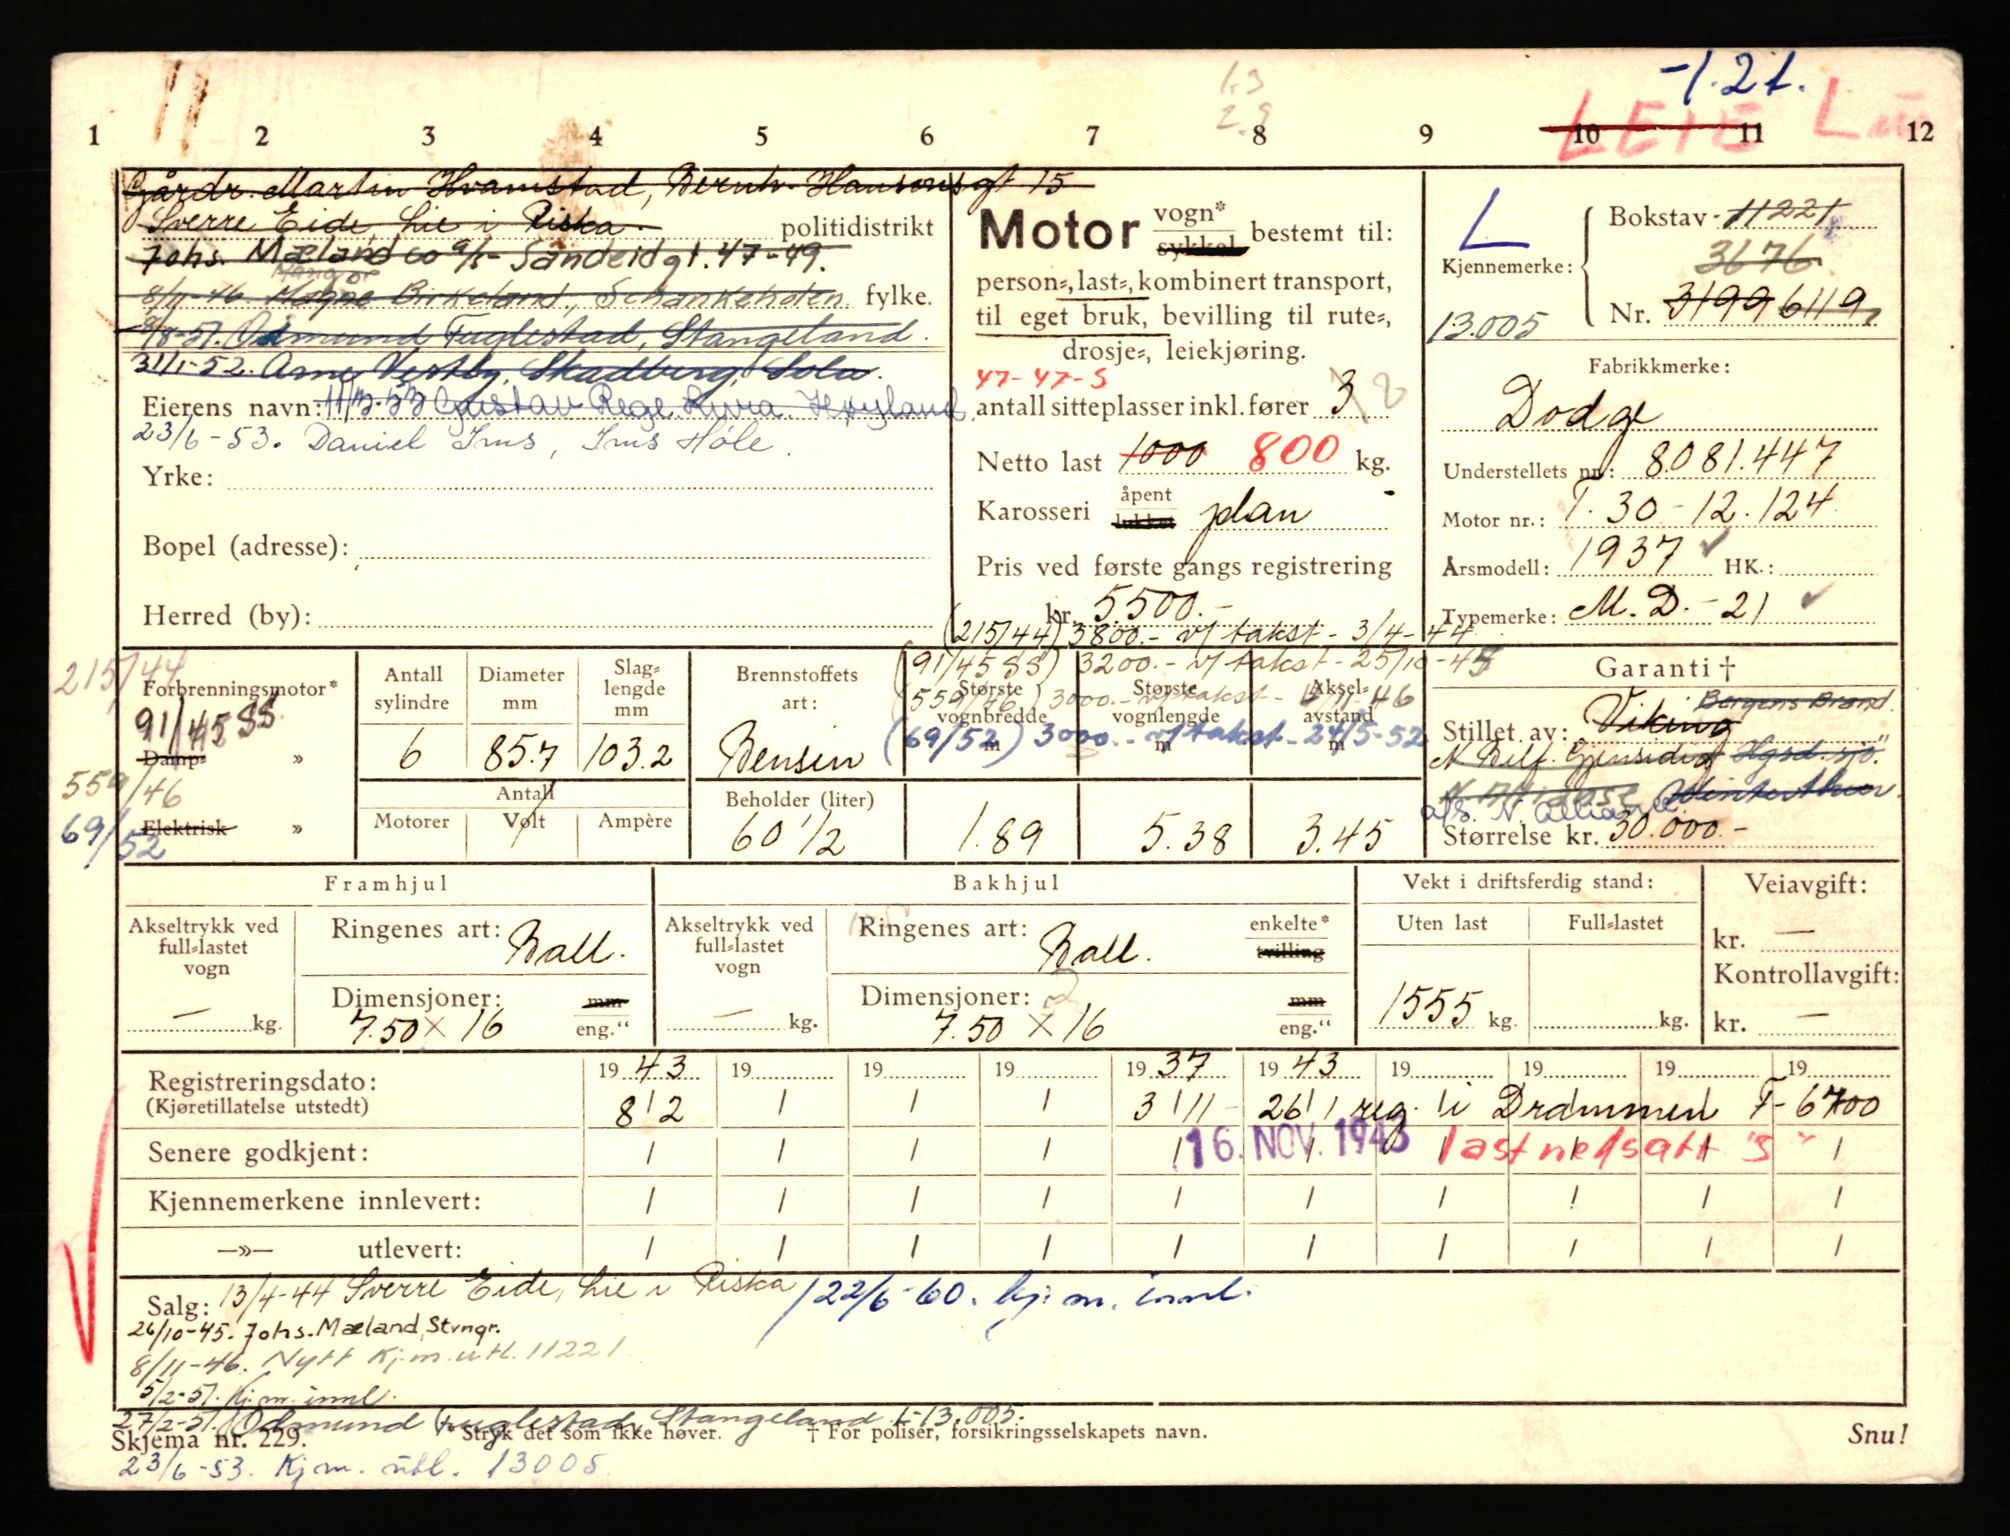 -1.2t.
1.3
2.9
LEIE L
1 2 3 4 5 6 7 8 9 10 11 12
Gårdr. Martin Hvamstad, Bernh. Hansensgt 15
Sverre Eide, Lie i Riska. politidistrikt
Johs. Mæland co a/s - Sandeidgt. 47-49.
8/11-46. Magne Birkeland, Schankeholen fylke.
9/8-51. Odmund Fuglestad, Stangeland.
31/1-52. Arne Vestby, Skadberg, Sola.
Eierens navn: 11/3-53 Gustav Rege Kvia Høyland.
23/6-53. Daniel Ims, Ims Høle.
Yrke:
Bopel (adresse):
Herred (by):
Motor vogn* sykkel bestemt til:
person=, last=, kombinert transport,
til eget bruk, bevilling til rute=,
drosje=, leiekjøring.
47-47-S
antall sitteplasser inkl. fører 3
Netto last 1000 800 kg.
Karosseri åpent lukket plan
Pris ved første gangs registrering
kr. 5500.-
(215/44) 3800.- v/ takst - 3/4-44
(91/45 SS) 3200.- v/ takst - 25/10-45
559/46) 3000.- v/ takst - 11-46
(69/52) 3000.- v/ takst - 24/5-52
L
Kjennemerke:
Bokstav 11221
3676
Nr. 3199 6119
13.005
Fabrikkmerke:
Dodge
Understellets nr.: 8.081.447
Motor nr.: T. 30-12.124
Årsmodell: 1937 HK.:
Typemerke: M.D.-21
215/44
Forbrenningsmotor*
91/45 SS
Damp= »
559/46
Elektrisk »
69/52
Antall sylindre
6
Diameter mm
85.7
Slag=lengde mm
103.2
Antall
Motorer Volt Ampère
Brennstoffets art:
Bensin
Beholder (liter)
60 1/2
Største vognbredde m
1.89
Største vognlengde m
5.38
Aksel=avstand m
3.45
Garanti †
Bergens Brand.
Stillet av: Viking
N. Bilf. Gjensidig Hgsd. sjø.
Winterthur
a/s. N. Alliance
Størrelse kr. 30.000.-
Framhjul
Akseltrykk ved full=lastet vogn
— kg.
Ringenes art: Ball.
Dimensjoner: mm
7.50 x 16 eng."
Bakhjul
Akseltrykk ved full=lastet vogn
— kg.
Ringenes art: Ball. enkelte* tvilling
Dimensjoner: 2 mm
7.50 x 16 eng."
Vekt i driftsferdig stand:
Uten last Full=lastet
1555 kg. kg.
Veiavgift:
kr. —
Kontrollavgift:
kr. —
Registreringsdato: 19 43 19 19 19 19 37 19 43 19 19 19 19
(Kjøretillatelse utstedt) 8/2 / / / 3/11 - 26/1 reg. i Drammen F-6700
Senere godkjent: 16. NOV. 1943 last nedsatt "S"
Kjennemerkene innlevert:
—»— utlevert:
Salg: 13/4-44 Sverre Eide, Lie i Riska /22/6-60. kj.m. innl.
26/10-45. Johs. Mæland, Stvngr.
8/11-46. Nytt Kj.m. utl. 11221
5/2-51. Kj.m. innl.
27/2-51. Odmund Fuglestad, Stangeland L-13.005.
Skjema nr. 229. * Stryk det som ikke høver. † For poliser, forsikringsselskapets navn. Snu!
23/6-53. Kj.m. utl. 13005.